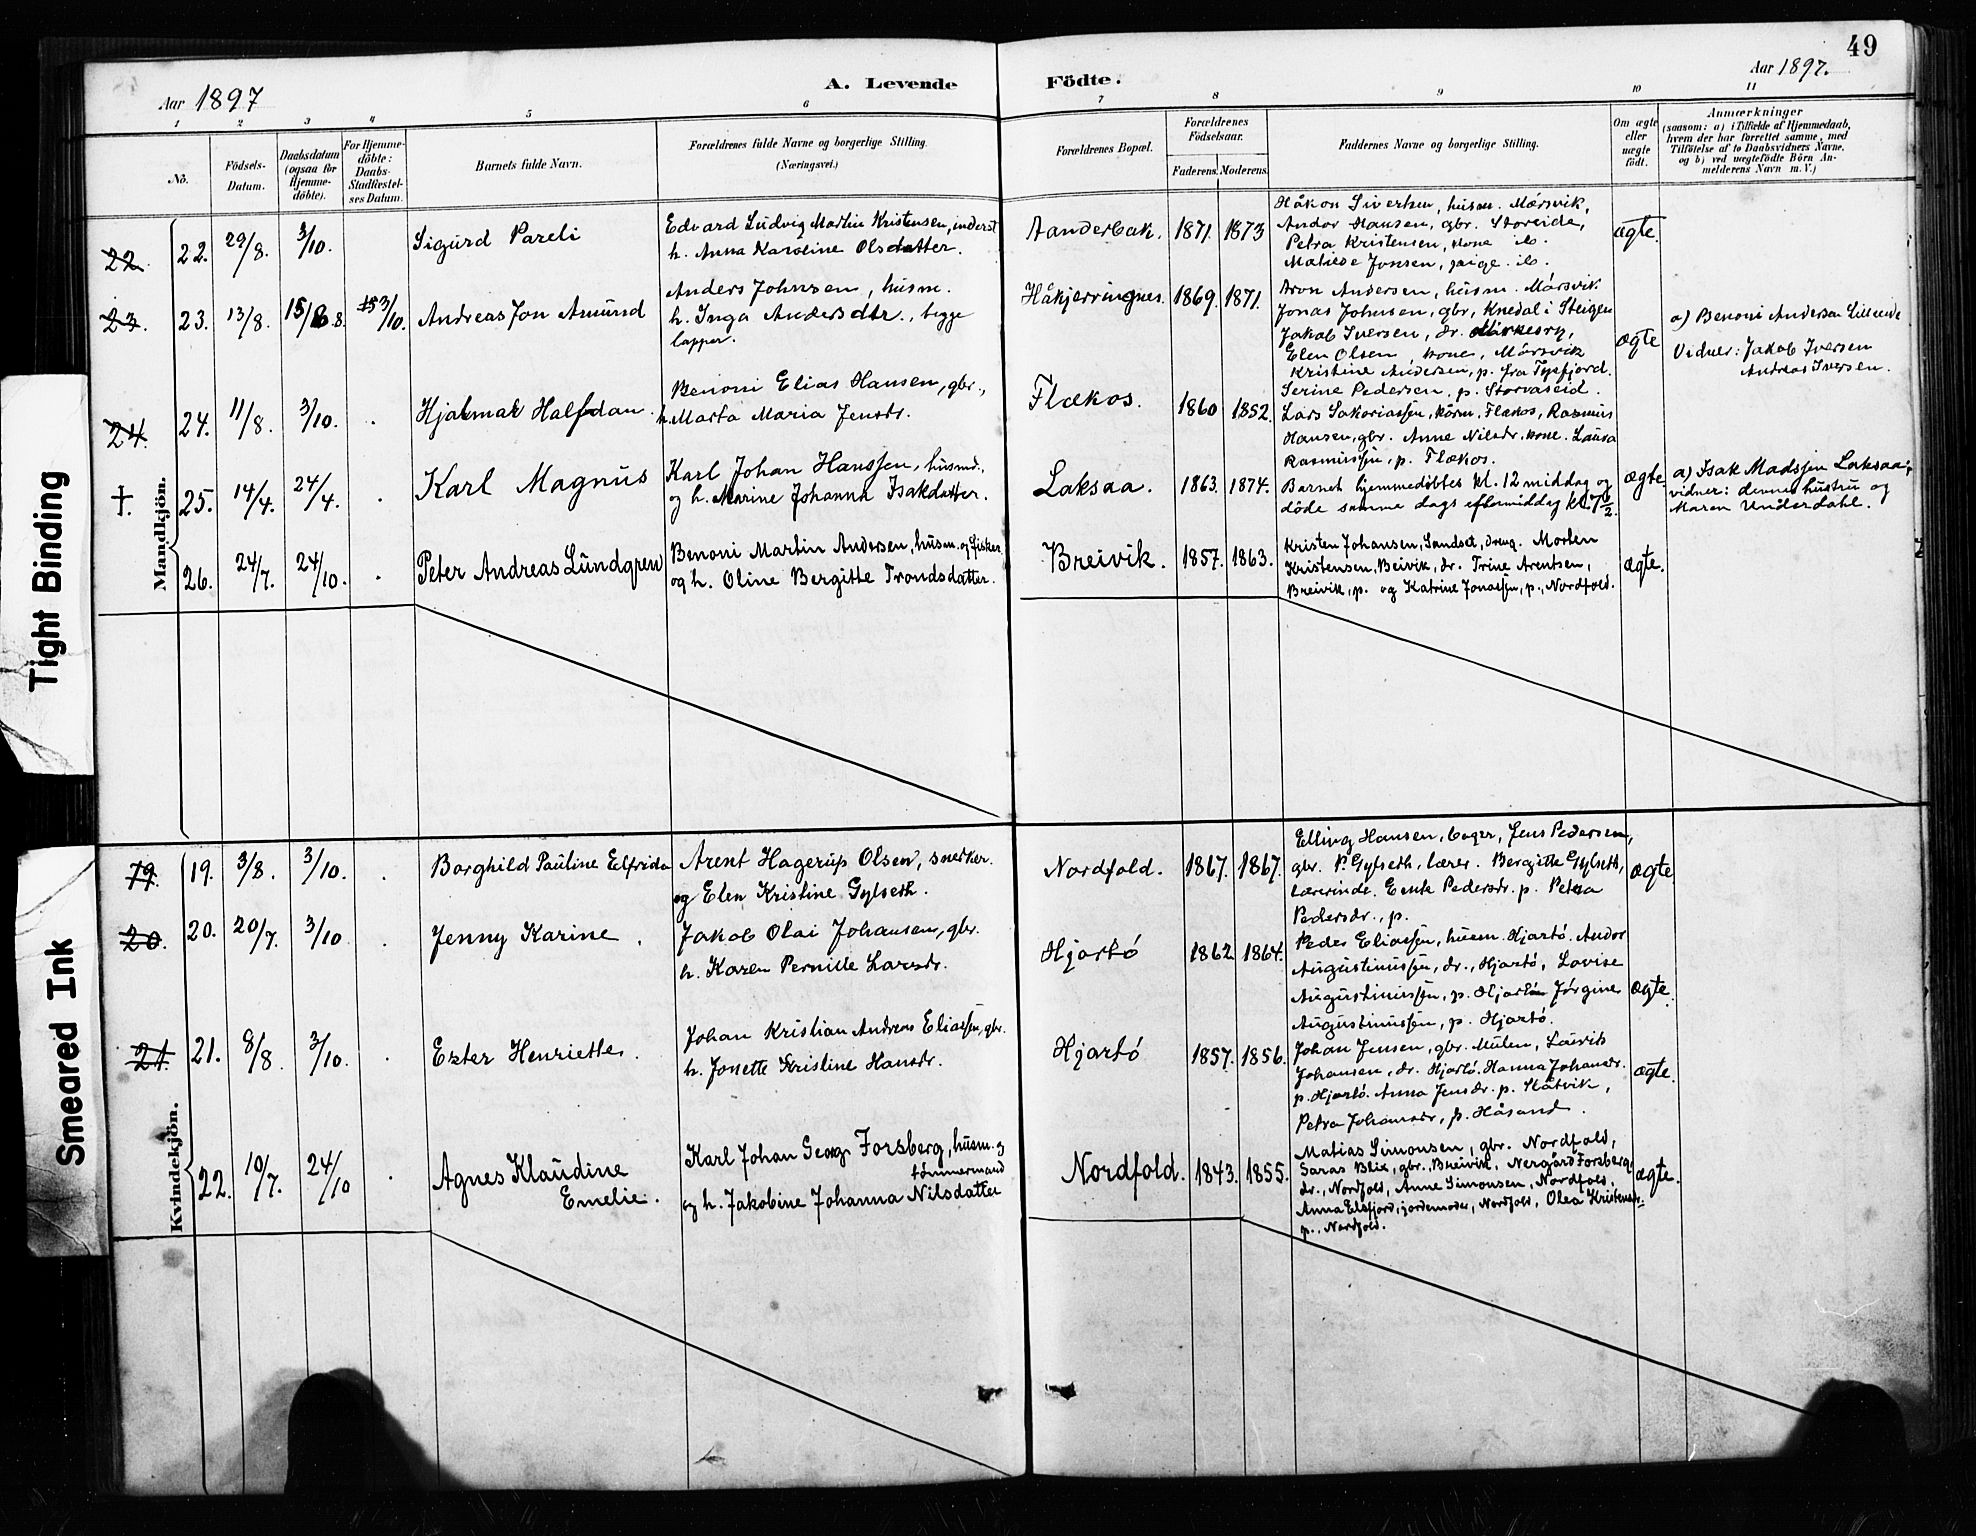 49
Aar 1897
A. Levende Födte.
Aar 1897.
1 2 3 4 5 6 7 8 9 10 11
No.
Födsels-
Datum.
Daabsdatum
(ogsaa for
Hjemme-
döbte).
For Hjemme-
döbte:
Daabs-
Stadfæstel-
ses Datum.
Barnets fulde Navn.
Forældrenes fulde Navne og borgerlige Stilling
(Næringsvei.)
Forældrenes Bopæl.
Forældrenes
Födselsaar.
Faderens. Moderens.
Faddernes Navne og borgerlige Stilling.
Om ægte
eller
uægte
født.
Anmærkninger
(saasom: a) i Tilfælde af Hjemmedaab,
hvem der har forrettet samme, med
Tilföielse af to Daabsvidners Navne,
og b) ved uægtefödte Börn An-
melderens Navn m.V.)
Mandkjön.
22 22. 29/8. 3/10. Sigurd Pareli
Edvard Ludvig Martin Kristensen, inderst
h. Anna Karoline Olsdatter.
Aanderbak. 1871. 1873
Håkon Sivertsen, husm. Mørsvik,
Andor Hansen, gbr. Storeide,
Petra Kristensen, kone ib.
Matilde Jonsen, paige. ib.
ægte.
23. 23. 13/8. 15/8. 3/10. Andreas Jon Amund
Anders Johnsen, husm.
h. Inga Andersdtr., begge
lapper.
Håkjerringnes. 1869. 1871.
Aron Andersen, husm. Mørsvik
Jonas Johnsen, gbr, Knedal i Steigen
Jakob Iversen, dr.
Elen Olsen, kone, Mørsvik
Kristine Andersen, p. fra Tysfjord.
ægte
a) Benoni Andersen Lilleeide
Vidner: Jakob Iversen
Andreas Iversen.
24. 24. 11/8. 3/10. Hjalmar Halfdan.
Benoni Elias Hansen, gbr.,
h. Marta Maria Jensdr.
Flækos. 1860 1852.
Serine Pedersen, p. Storvaseid.
Lars Sakariassen, kårm, Flækos, Rasmus
Hansen, gbr. Anne Nilsdr, kone. Laura
Rasmussen, p. Flækos.
ægte.
†. 25. 14/4. 24/4. Karl Magnus
Karl Johan Hanssen, husmd.,
og h. Marine Johanna Isakdatter.
Laksaa. 1863. 1874.
Barnet hjemmedöbtes kl. 12 middag og
döde samme dags eftermiddag kl. 7 1/2.
a) Isak Madssen Laksaa;
vidner: dennes hustru og
Maren Underdahl.
26. 24/7. 24/10. Peter Andreas Lundgren
Benoni Martin Andersen, husm. og fisker,
og h. Oline Bergitte Trondsdatter.
Breivik. 1857. 1863.
Kristen Johansen, Sandset, dreng. Morten
Kristensen, Beivik, dr. Trine Arentsen,
Breivik, p. og Katrine Jonassen, p., Nordfold.
ægte.
Kvindekjön.
19. 19. 3/8. 3/10. Borghild Pauline Elfrida
Arent Hagerup Olsen, snedker.
og Elen Kristine Gylseth.
Nordfold. 1867. 1867.
Elling Hansen, bager, Jens Pedersen,
gbr. P. Gylseth, lærer. Bergitte Gylseth,
lærerinde. Pedersdr. p. Petra
Pedersdr., p.
ægte.
20. 20. 20/7. 3/10 Jenny Karine
Jakob Olai Johansen, gbr.
h. Karen Pernille Larsdr.
Hjartö 1862 1864.
Peder Eliassen, husm. Hjartö. Andor
Augustinussen, dr., Hjartö, Lovise
Augustinussen, p. Hjartö Jørgine
Augustinussen, p. Hjartö.
ægte.
21. 21. 8/8. 3/10. Ester Henriette.
Johan Kristian Andreas Eliassen, gbr.
h. Jonette Kristine Hansdr.
Hjartö 1857. 1856.
Johan Jensen, gbr. Mulen, Laurits
Johansen, dr. Hjartö. Hanna Johansdr.
p. Hjartö. Anna Jensdr. p. Slåtvik,
Petra Johansdr, p. Håsand.
ægte.
22. 10/7. 24/10 Agnes Klaudine
Emelie.
Karl Johan Georg Forsberg, husm. og
tømmermand
og h. Jakobine Johanna Nilsdatter
Nordfold. 1843. 1855.
Matias Simonsen, gbr. Nordfold,
Saras Blix, gbr., Breivik, Nergård Forsberg,
dr., Nordfold, Anne Simonsen, Nordfold,
Anna Elsfjord, jordemoder, Nordfold, Olea Kristensdr.
p., Nordfold.
ægte.
Tight Binding
Smeared Ink